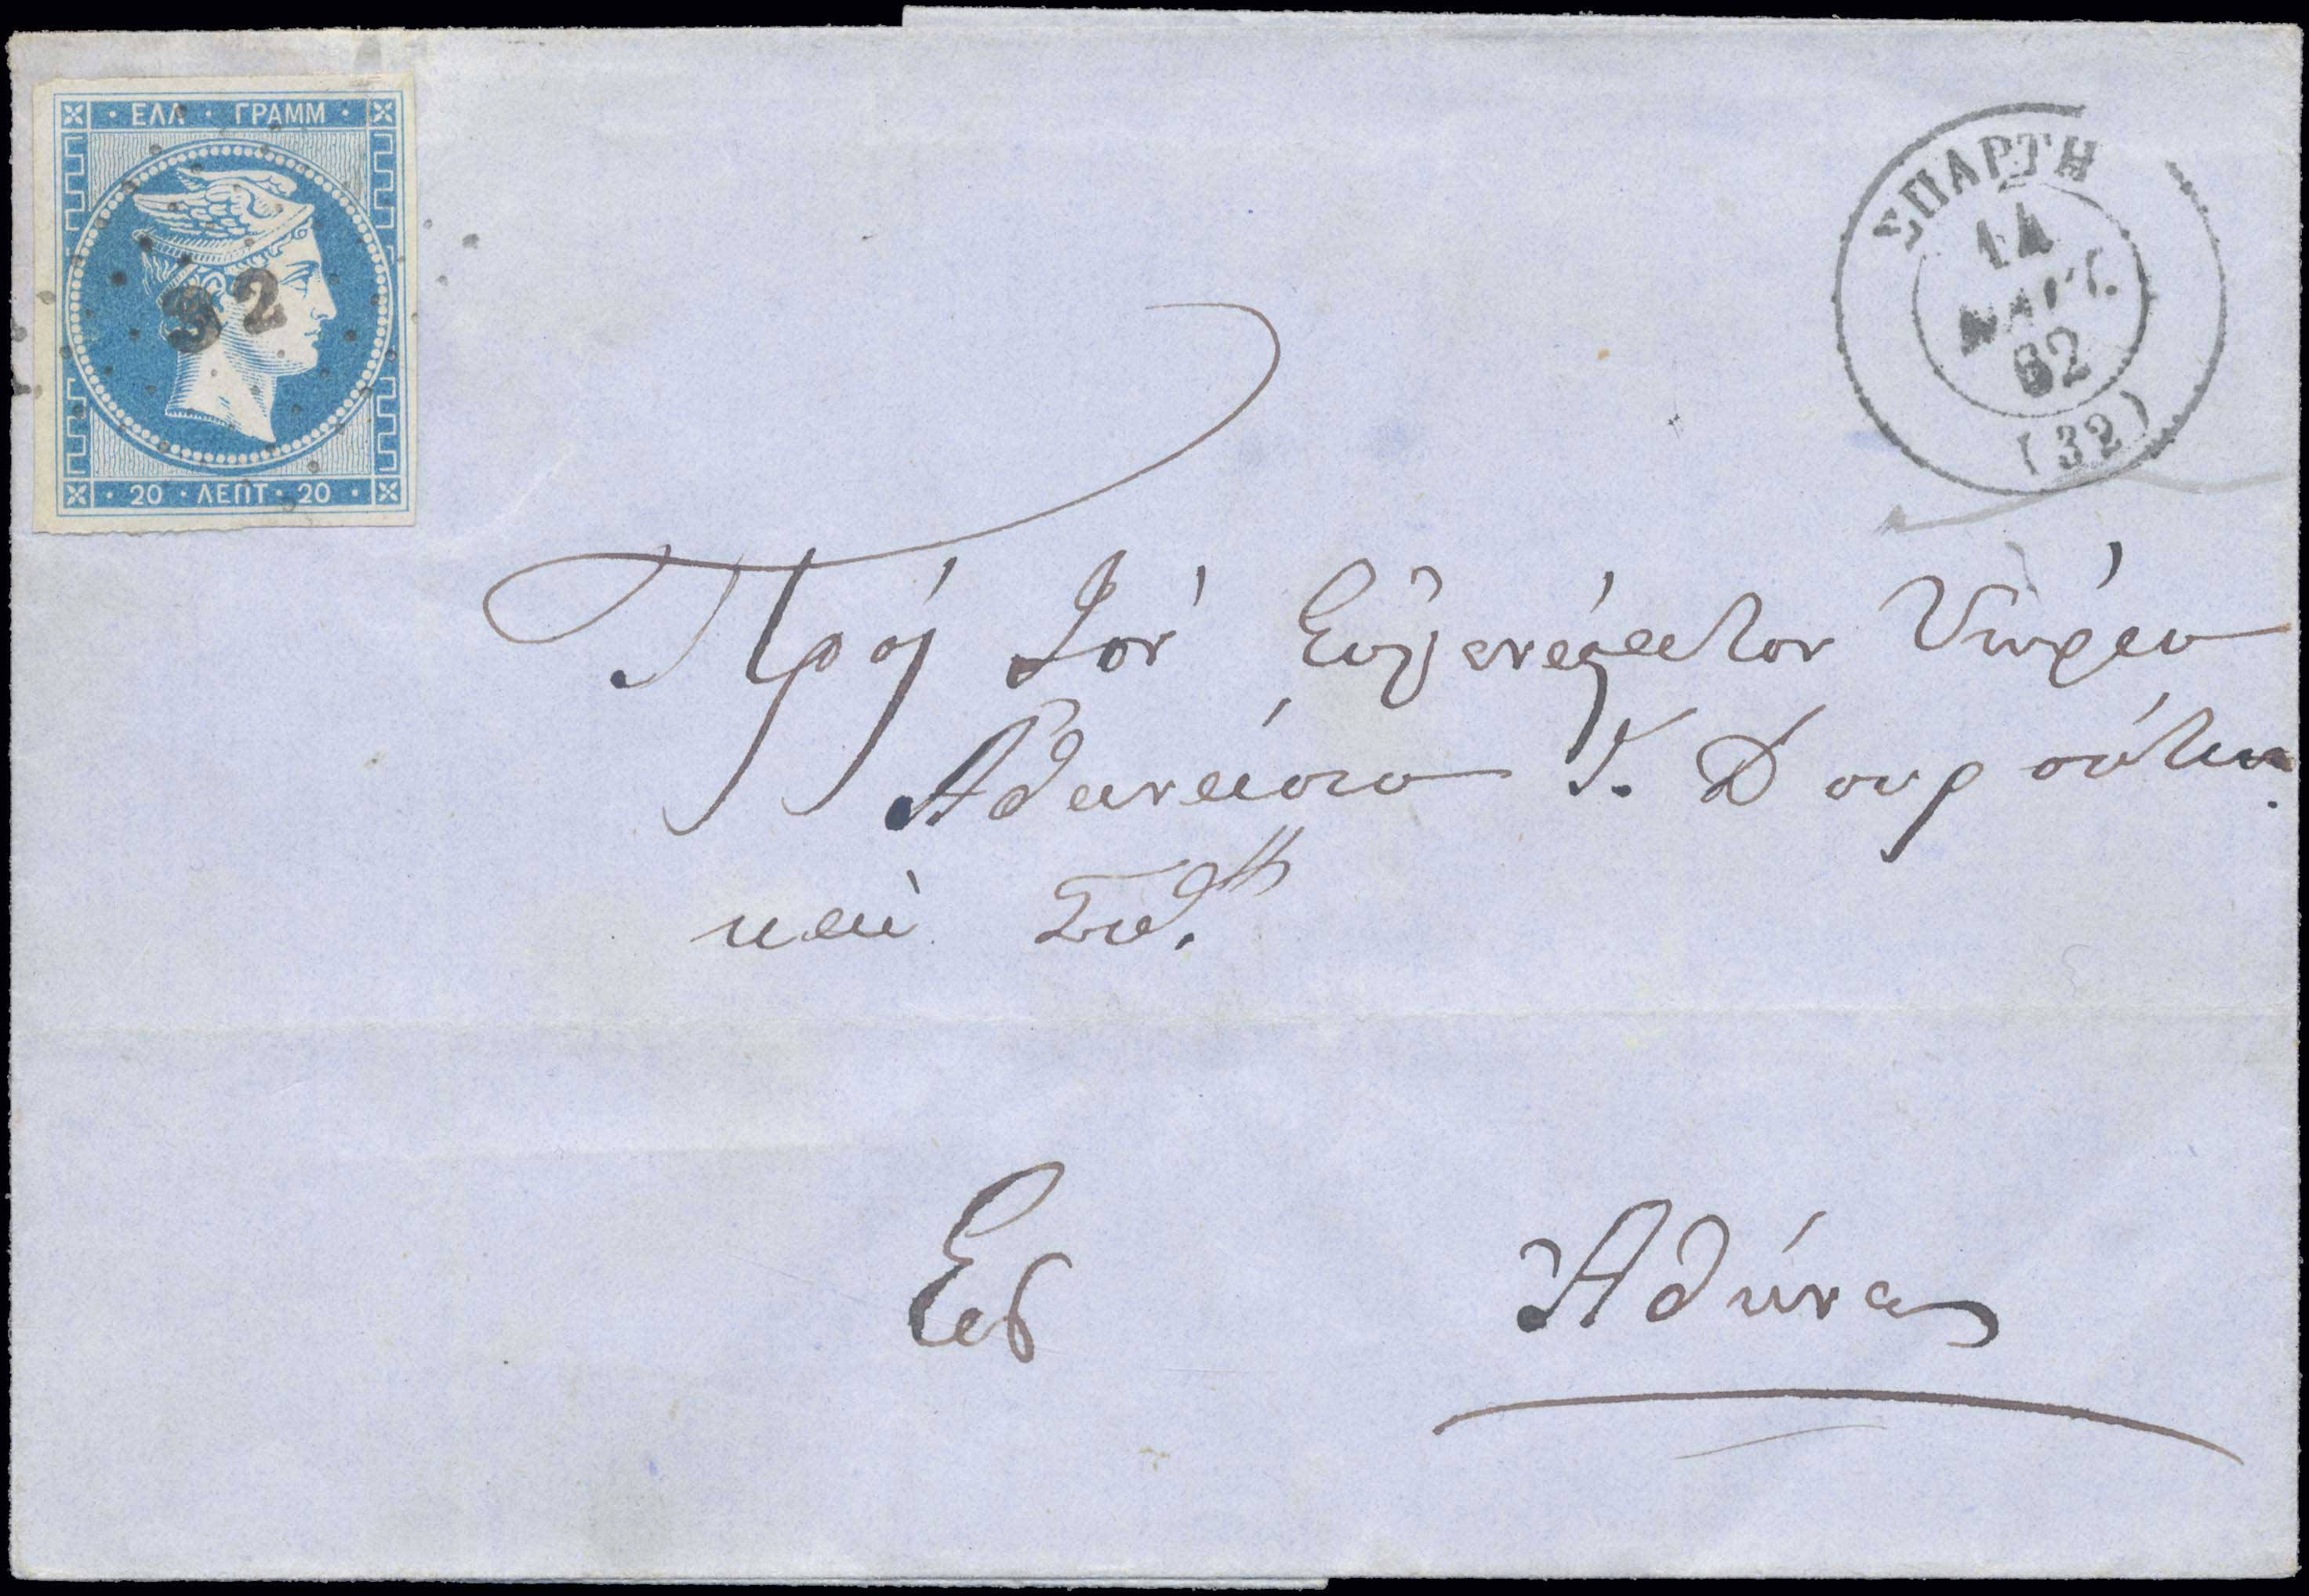 · ΕΛΛ · ΓΡΑΜΜ ·
32
· 20 · ΛΕΠΤ · 20 ·
ΣΠΑΡΤΗ
14
ΜΑΡΤ.
62
(32)
Πρός τον Ευγενέστατον Κύριον
Αθανάσιον Γ. Δουρούτην
και Συ
Εις Αθήνας